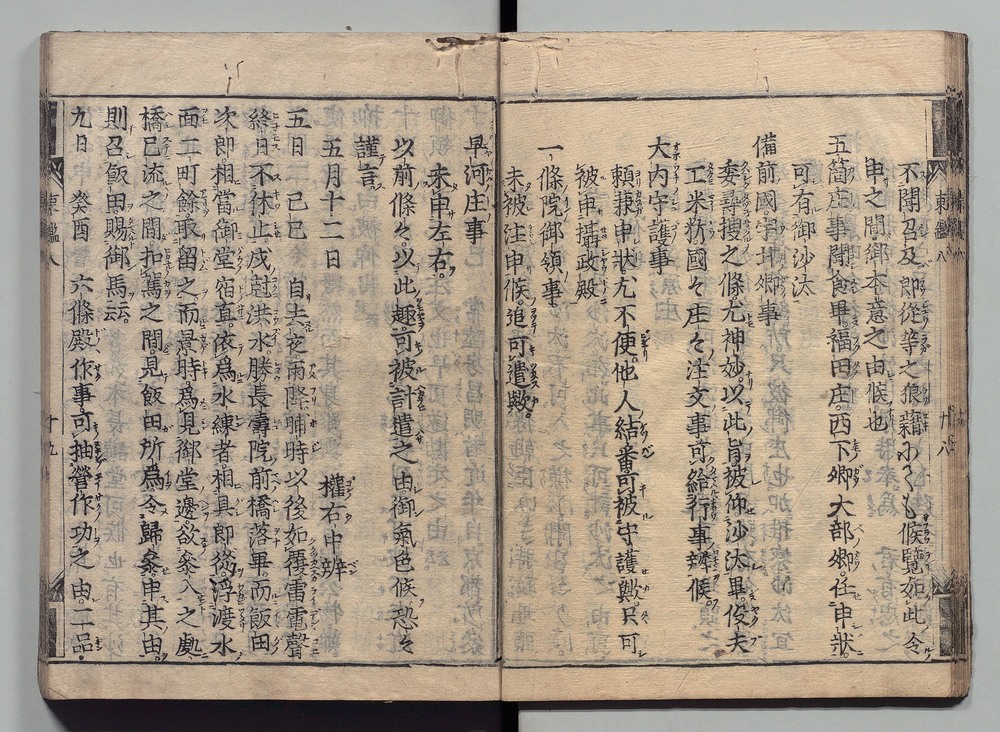 不聞召及即從等之狼藉小〻も候覽如此令
申之間御本意之由候也
五箇庄事聞食畢福田庄西下郷大部郷任申狀
可有御沙汰
備前國
委尋捜之條尤神妙以此旨被仰沙汰畢俊夫
工米於國々庄々注文事可給行事辨候
大内守護事
頼兼申狀尤不便他人結番可被守護歟只可
被申攝政殿
一條院御領事
未被注申候追可遣歟
東鑑八
十八
早河庄事
未申左右
以前條々以此趣可被計遣之由御氣色候恐々
謹言
五月十二日 權右中辨
五日 己巳 自去夜雨降聊時以後如覆雷電聲
終日不休止戌尅洪水勝長壽院前橋落畢而飯田
次郎相當御堂宿直依爲水練者相具郎從浮渡水
面二町餘取留之而景時爲見御堂邊欲參入之處
橋已流之間扣駕之間見飯田所爲令歸參申其由
則召飯田賜御馬云云
九日 癸酉 六條殿作事可抽營作功之由二品
東鑑八
十九